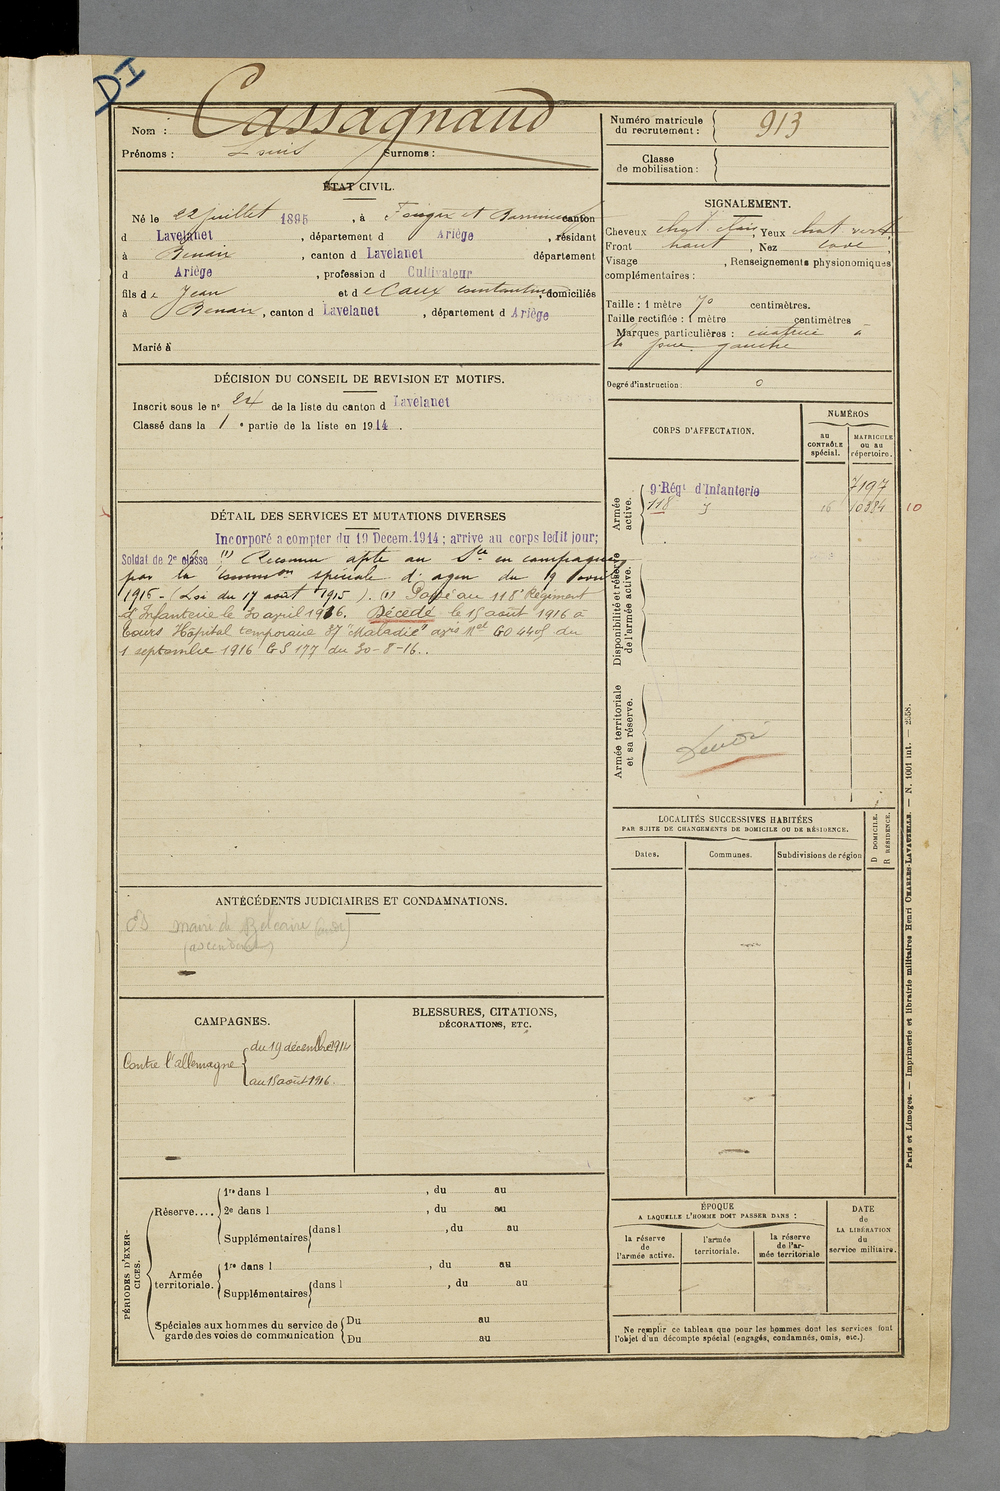 DI
Nom : Cassagnaud
Prénoms : Louis Surnoms :
ÉTAT CIVIL.
Né le 22 juillet 1895, à Fougax et Barrineuf canton
d Lavelanet, département d Ariège, résidant
à Benaix, canton d Lavelanet département
d Ariège, profession d Cultivateur
fils de Jean et de Caux, domiciliés
à Benaix, canton d Lavelanet, département d Ariège
Marié à
DÉCISION DU CONSEIL DE REVISION ET MOTIFS.
Inscrit sous le n° 24 de la liste du canton d Lavelanet
Classé dans la 1e partie de la liste en 1914.
DÉTAIL DES SERVICES ET MUTATIONS DIVERSES
Incorporé a compter du 19 Decem. 1914; arrive au corps ledit jour;
Soldat de 2e classe (1) Reconnu apte au Sce en campagne
par la Common spéciale d'agen du 9 avril
1916 - (Loi du 17 août 1915). (1) Passé au 118e Régiment
d'Infanterie le 30 april 1916. Décédé le 15 août 1916 à
Tours Hôpital temporaire 37 "Maladie" avis Mel GO 4405 du
1 septembre 1916 GS 177 du 30-8-16..
ANTÉCÉDENTS JUDICIAIRES ET CONDAMNATIONS.
mairie de Belcaire (Aude)
(ascendant)
CAMPAGNES.
Contre l'allemagne { du 19 décembre 1914
au 15 août 1916.
BLESSURES, CITATIONS,
DÉCORATIONS, ETC.
PÉRIODES D'EXERCICES.
Réserve.... 1re dans l , du au
2e dans l , du au
Supplémentaires dans l , du au
Armée territoriale. 1re dans l , du au
Supplémentaires dans l , du au
Spéciales aux hommes du service de Du au
garde des voies de communication Du au
Numéro matricule
du recrutement : 913
Classe
de mobilisation :
SIGNALEMENT.
Cheveux chat. clair, Yeux chat. vert,
Front haut, Nez cave,
Visage , Renseignements physionomiques
complémentaires :
Taille : 1 mètre 70 centimètres.
Taille rectifiée : 1 mètre centimètres
Marques particulières : cicatrice à
la joue gauche
Degré d'instruction : 0
CORPS D'AFFECTATION.
NUMÉROS
au
CONTRÔLE
spécial.
MATRICULE
ou au
répertoire.
Armée
active.
9e Régt d'Infanterie 7197
118 16 10384 10
Disponibilité et réserve
de l'armée active.
Armée territoriale
et sa réserve.
LOCALITÉS SUCCESSIVES HABITÉES
PAR SUITE DE CHANGEMENTS DE DOMICILE OU DE RÉSIDENCE.
Dates. Communes. Subdivisions de région
D DOMICILE.
R RÉSIDENCE.
ÉPOQUE
A LAQUELLE L'HOMME DOIT PASSER DANS :
la réserve
de
l'armée active.
l'armée
territoriale.
la réserve
de l'armée territoriale
DATE
de
LA LIBÉRATION
du
service militaire.
Ne remplir ce tableau que pour les hommes dont les services font
l'objet d'un décompte spécial (engagés, condamnés, omis, etc.).
Paris et Limoges. — Imprimerie et librairie militaires Henri CHARLES-LAVAUZELLE. — N. 1001 int. — 2558.